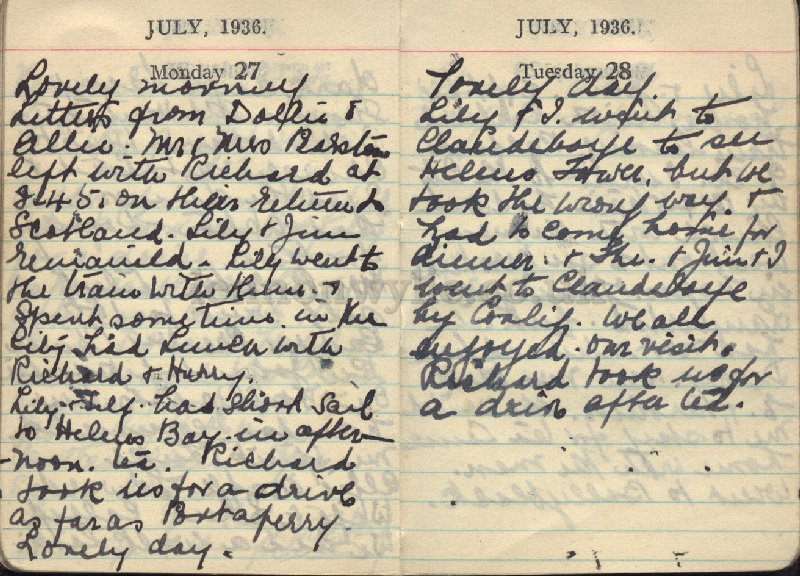 JULY, 1936.
Monday 27
Lovely morning
Letters from Dollie &
Allie. Mr & Mrs Barston
left with Richard at
8-45. on their return to
Scotland. Lily & Jim
remained. Lily went to
the train with them. &
spent some time. in the
City had Lunch with
Richard & Harry.
Lily & self. had short sail
to Helens Bay. in after-
noon. tea. Richard
took us for a drive
as far as Portaferry.
Lovely day.
JULY, 1936.
Tuesday 28
Lovely day.
Lily & I. went to
Clandeboye to see
Helens Tower. but we
took the wrong way. &
had to come home for
dinner. & she. & Jim & I
went to Clandeboye
by Conlig. We all
enjoyed. our visit.
Richard took us for
a drive after tea.